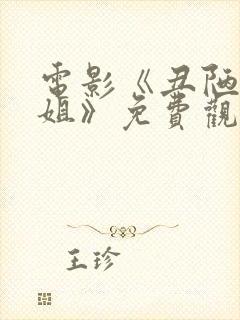 電影《丑陋
姐》免費觀
王珍